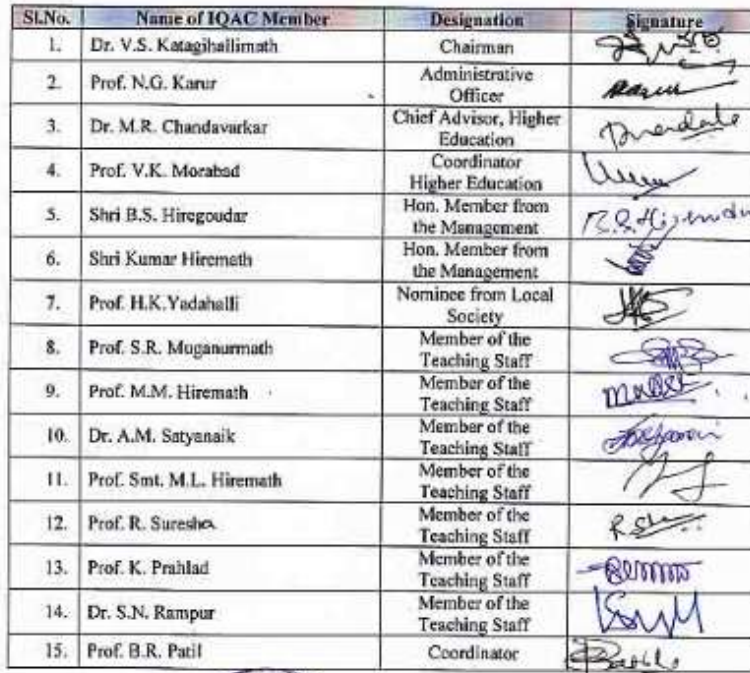 Sl.No. Name of IQAC Member Designation Signature
1. Dr. V.S. Katagihallimath Chairman
2. Prof. N.G. Karur Administrative
Officer
3. Dr. M.R. Chandavarkar Chief Advisor, Higher
Education
4. Prof. V.K. Morabad Coordinator
Higher Education
5. Shri B.S. Hiregoudar Hon. Member from
the Management
6. Shri Kumar Hiremath Hon. Member from
the Management
7. Prof. H.K.Yadahalli Nominee from Local
Society
8. Prof. S.R. Muganurmath Member of the
Teaching Staff
9. Prof. M.M. Hiremath Member of the
Teaching Staff
10. Dr. A.M. Satyanaik Member of the
Teaching Staff
11. Prof. Smt. M.L. Hiremath Member of the
Teaching Staff
12. Prof. R. Suresha Member of the
Teaching Staff
13. Prof. K. Prahlad Member of the
Teaching Staff
14. Dr. S.N. Rampur Member of the
Teaching Staff
15. Prof. B.R. Patil Coordinator